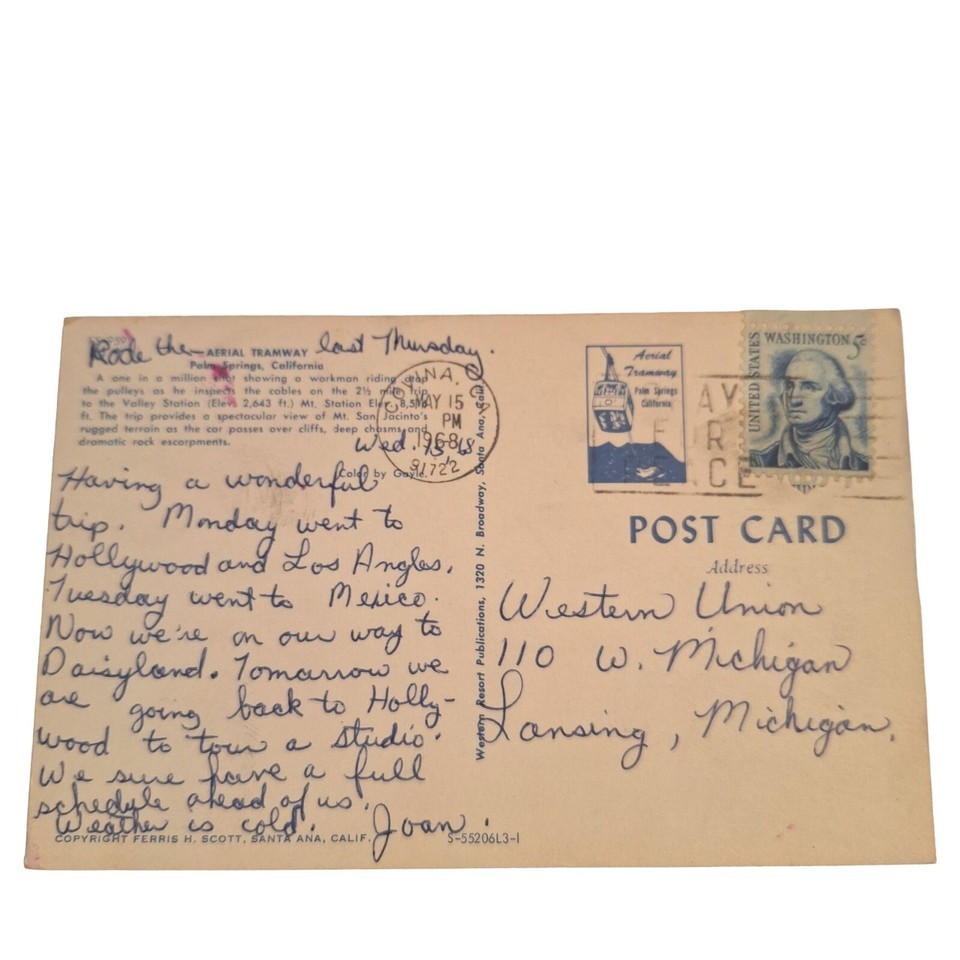 Rode the
AERIAL TRAMWAY
last Thursday.
Palm Springs, California
A one in a million shot showing a workman riding atop
the pulleys as he inspects the cables on the 2½ mile trip
to the Valley Station (Elev. 2,643 ft.) Mt. Station Elev. 8,516
ft. The trip provides a spectacular view of Mt. San Jacinto's
rugged terrain as the car passes over cliffs, deep chasms and
dramatic rock escorpments.
Color by Gayle.
Wed. 15 '68
Having a wonderful
trip. Monday went to
Hollywood and Los Angles.
Tuesday went to Mexico.
Now we're on our way to
Daisyland. Tomorrow we
are going back to Holly-
wood to tour a studio.
We sure have a full
schedule ahead of us.
Weather is cold. Joan.
COPYRIGHT FERRIS H. SCOTT, SANTA ANA, CALIF.
S-55206L3-1
Western Resort Publications, 1320 N. Broadway, Santa Ana, Calif.
COVINA, CA
MAY 15
PM
1968
91722
Aerial
Tramway
Palm Springs
California
UNITED STATES
WASHINGTON 5c
POST CARD
Address
Western Union
110 W. Michigan
Lansing, Michigan.